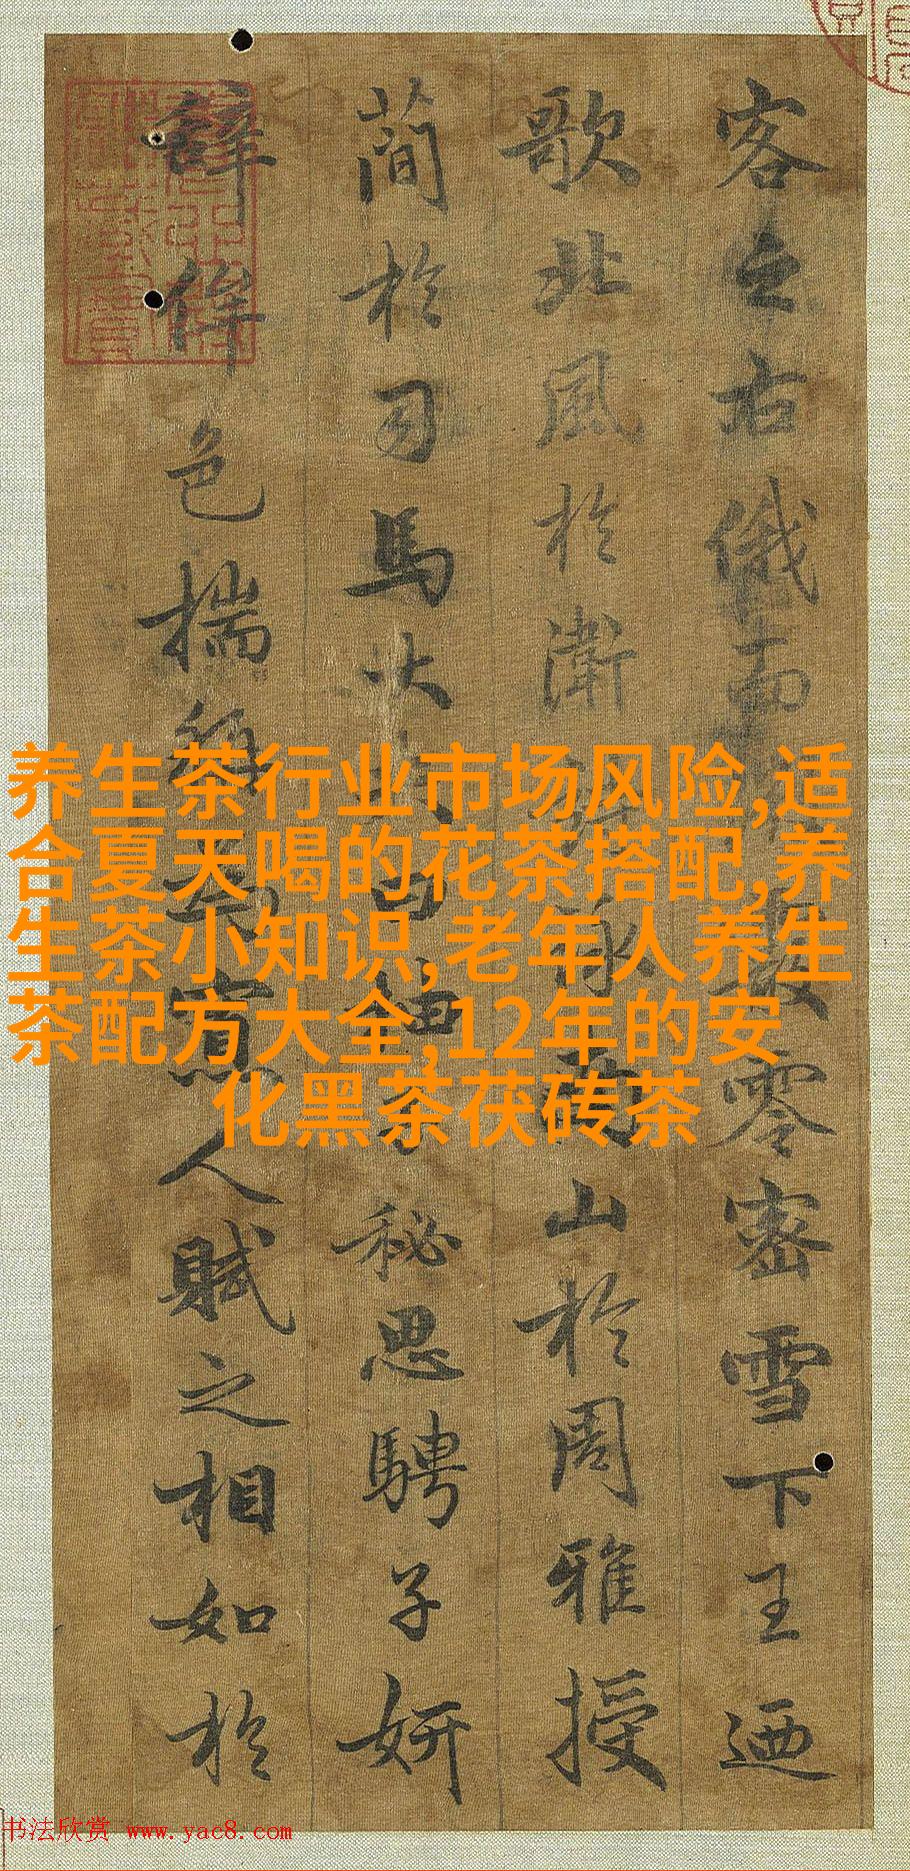 客之右俄而霰零密雪下王迺
歌北風於衛詩詠南山於周雅授
簡於司馬大夫曰抽子秘思騁子妍
辭侔色揣稱為寡人賦之相如於
养生茶行业市场风险,适
合夏天喝的花茶搭配,养
生茶小知识,老年人养生
茶配方大全,12年的安
化黑茶茯砖茶
书法欣赏 www.yac8.com